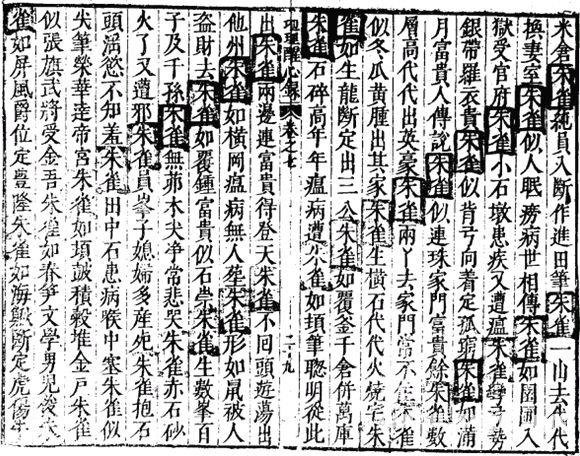 米倉朱雀純員入斷作進田筆朱雀一山去代代
換妻室朱雀似人眠癆病世相傳朱雀如圍入
獄受官府朱雀小石墩患疾又遭瘟朱雀彎弓勢
銀帶羅衣貴朱雀似背弓向着定孤窮朱雀如滿
月富貴人傳說朱雀似連珠家門富貴餘朱雀數
層高代代出英豪朱雀兩丫去家門常不住朱雀
似冬瓜黄腫出其家朱雀生橫石代代火燒宅朱
雀如生龍斷定出三公朱雀如覆釜千倉併萬庫
朱雀石碎高年年瘟病遭朱雀如項筆聰明從此
地理醒心錄 卷之七 二十九
出朱雀兩邊連富貴得登天朱雀不回頭遊蕩出
他州朱雀如橫岡瘟病無人塟朱雀形如鼠被人
盗財去朱雀如覆鍾富貴似石崇朱雀生數峯百
子及千孫朱雀無茆木夫净常悲哭朱雀赤石砂
火了又遭邪朱雀員峯子媳婦多産死朱雀抱石
頭淫慾不知羞朱雀田中石患病喉中塞朱雀似
尖筆榮華達帝宮朱雀如項誠積穀堆金戶朱雀
似張旗武將受金吾朱雀如春笋文學男兒俊朱
雀如屏風爵位定豊隆朱雀如海獸斷定虎傷